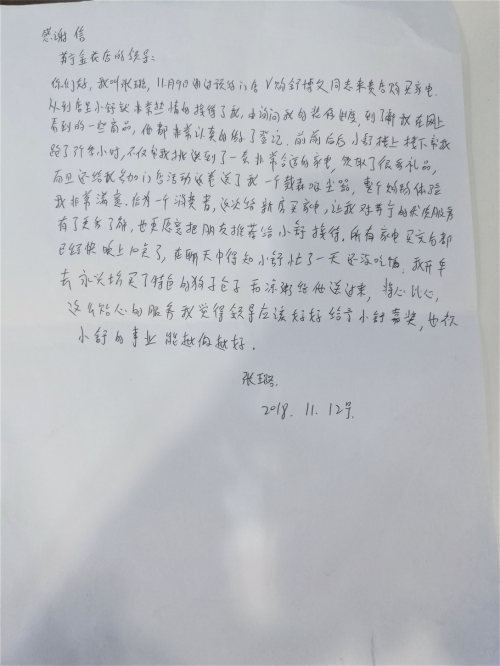 感谢信
苏宁金花店的领导:
你们好,我叫张璐,11月9日由门店V购舒博文同志来贵店购买家电.
从到店里小舒就非常热情的接待了我,由访问我的装修进度,到了解我在网上
看到的一些商品,他都非常认真的做了登记.前前后后小舒楼上楼下帮我
跑了3个多小时,不仅帮我挑选到了一套非常合适的家电,领取了很多礼品,
而且还给我参加门店活动返卷送了我一个戴森吸尘器,整个购物体验
我非常满意.作为一个消费者,这次给新房买家电,让我对苏宁的优质服务
有了更多了解,也更愿意把朋友推荐给小舒接待,所有家电买完后都
已经快晚上10点了,在聊天中得知小舒忙了一天还没吃饭.我开车
去永兴坊买了特色的狗子包子和凉粥给他送过来,将心比心,
这么贴心的服务我觉得领导应该好好给予小舒嘉奖,也祝
小舒的事业能越做越好.
张璐.
2018.11.12号.